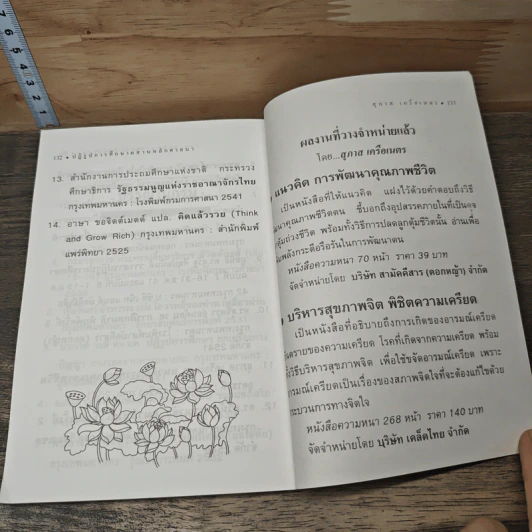 132 • ปฏิรูปการศึกษาตามหลักศาสนา
13. สำนักงานการประถมศึกษาแห่งชาติ กระทรวง
ศึกษาธิการ รัฐธรรมนูญแห่งราชอาณาจักรไทย
กรุงเทพมหานคร : โรงพิมพ์กรมการศาสนา 2541
14. อาษา ขอจิตต์เมตต์ แปล. คิดแล้วรวย (Think
and Grow Rich) กรุงเทพมหานคร : สำนักพิมพ์
แพร่พิทยา 2525
สุภาส เครือเนตร • 133
ผลงานที่วางจำหน่ายแล้ว
โดย...สุภาส เครือเนตร
แนวคิด การพัฒนาคุณภาพชีวิต
เป็นหนังสือที่ให้แนวคิด แฝงไว้ด้วยคำตอบถึงวิธี
คุณภาพชีวิตตน ชี้บอกถึงอุปสรรคภายในที่เป็นดุจ
คุ้มถ่วงชีวิต พร้อมทั้งวิธีการปลดลูกตุ้มชีวิตนั้น อ่านเพื่อ
พลังกระตือรือร้นในการพัฒนาตน
หนังสือความหนา 70 หน้า ราคา 39 บาท
จัดจำหน่ายโดย บริษัท สามัคคีสาร (ดอกหญ้า) จำกัด
บริหารสุขภาพจิต พิชิตความเครียด
เป็นหนังสือที่อธิบายถึงการเกิดของอารมณ์เครียด
ของความเครียด โรคที่เกิดจากความเครียด พร้อม
วิธีบริหารสุขภาพจิต เพื่อใช้ขจัดอารมณ์เครียด เพราะ
อารมณ์เครียดเป็นเรื่องของสภาพจิตใจที่จะต้องแก้ไขด้วย
กระบวนการทางจิตใจ
หนังสือความหนา 268 หน้า ราคา 140 บาท
จัดจำหน่ายโดย บริษัท เคล็ดไทย จำกัด
7
6
5
4
3
2
1